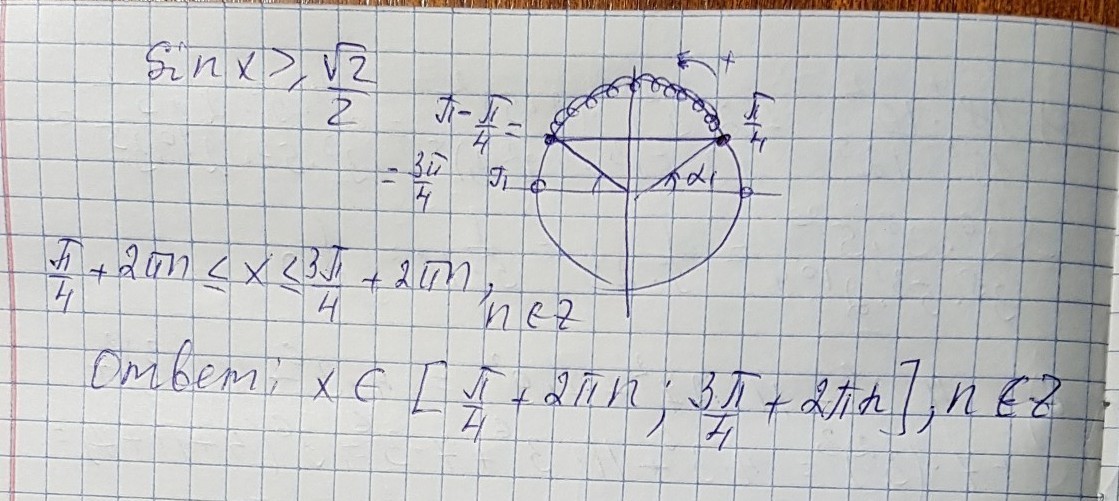 Sin x ≥ √2/2
π - π/4 =
= 3π/4
π
π/4
+
α1
π/4 + 2πn ≤ x ≤ 3π/4 + 2πn,
n ∈ Z
Ответ: x ∈ [π/4 + 2πn; 3π/4 + 2πn], n ∈ Z